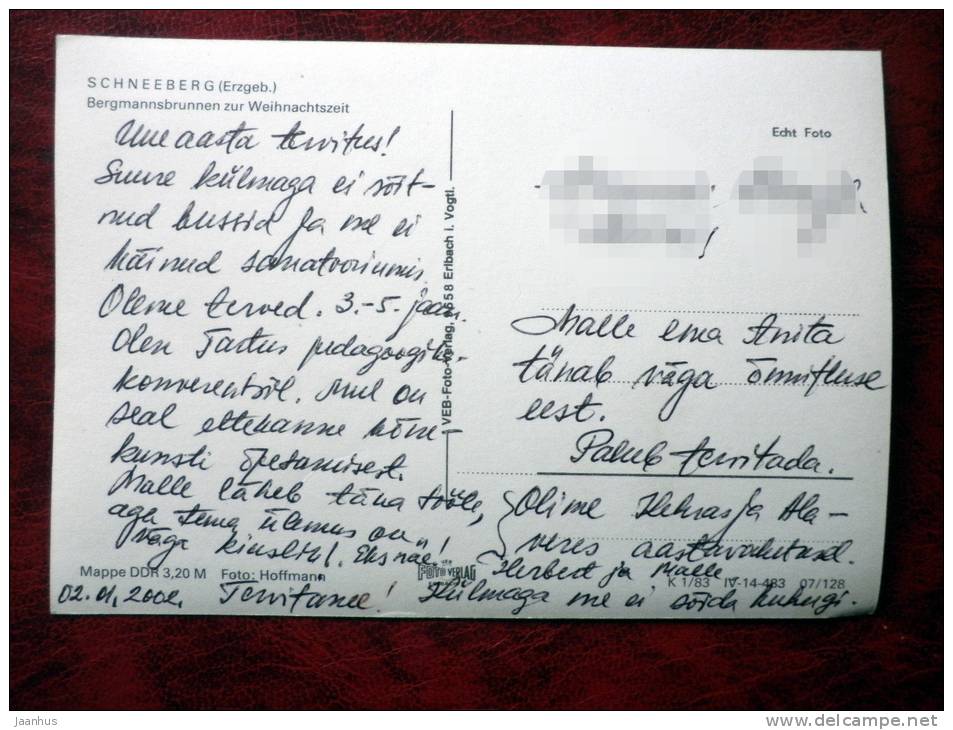 SCHNEEBERG (Erzgeb.)
Bergmannsbrunnen zur Weihnachtszeit
Uue aasta tervitus!
Suure külmaga ei sõit-
nud bussid ja me ei
käinud sanatooriumis.
Oleme terved. 3.-5. jaan.
olen Tartus pedagoogik-
konverentsil. Mul on
seal ettekanne kõne-
kunsti õpetamisest.
Malle läheb täna tööle,
aga tema ülemus on
väga Eks näe!
Mappe DDR 3,20 M Foto: Hoffmann
02.01.2002. Tervitame!
VEB-Foto-Verlag, 9658 Erlbach i. Vogtl.
Echt Foto
Malle ema Anita
tänab väga õnnitluse
eest.
Palub tervitada.
Olime Kehras ja Ala-
veres aastavahetusel.
Herbert ja Malle
FOTO VERLAG
K 1/83 IV-14-483 07/128
Külmaga me ei sõida kuhugi.
jaanhus
www.delcampe.net